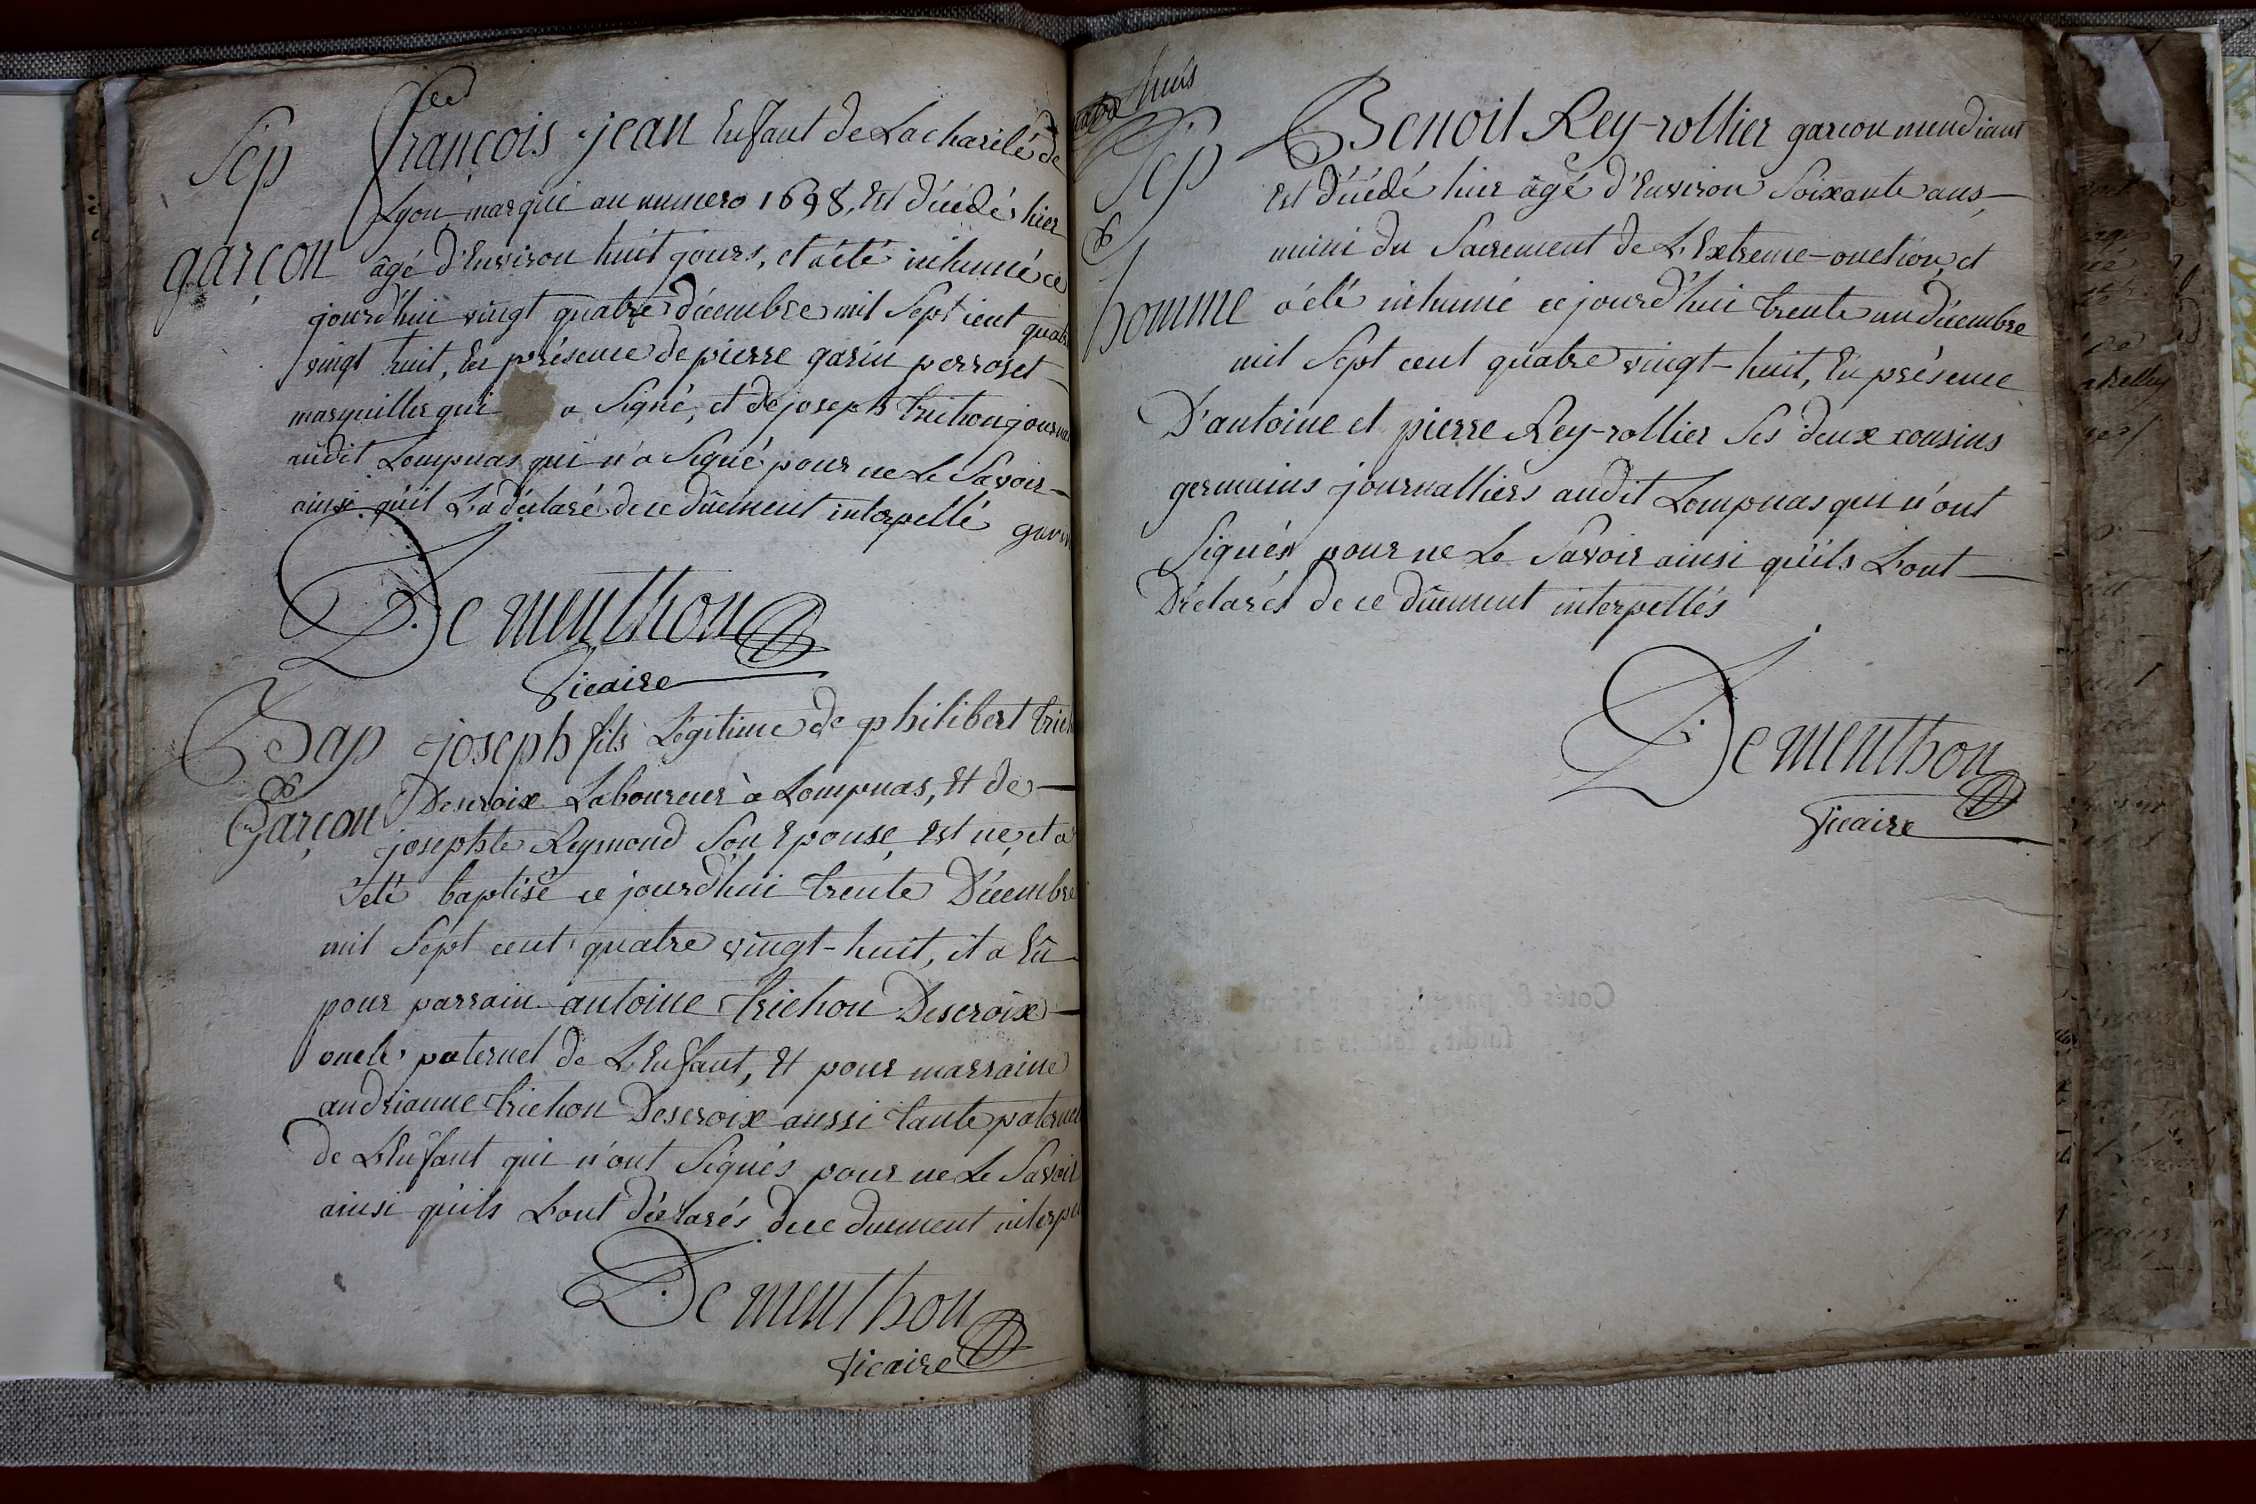 Sep
garçon
françois jean Enfant de Lacharité de
Lyon marqué au numero 1698, Est décédé hier
âgé d'Environ huit jours, et a été inhumé ce
jourd'hui vingt quatre décembre mil Sept cent quatre
vingt huit, En présence de pierre garin perroset
marguiller qui a Signé, et de joseph trichon journa
audit Lompnas qui n'a Signé pour ne Le Savoir
ainsi qu'il L'a déclaré de ce dûement interpellé garin
De menthon
Vicaire
Bap
&
Garçon
joseph fils Légitime de philibert trich
Descroix Laboureur à Lompnas, Et de
josephte Reymond Son Epouse, Est né, et a
été baptisé ce jourd'hui trente Décembre
mil Sept cent quatre vingt-huit, il a Eû
pour parrain antoine trichon Descroix
oncle paternel de L'Enfant, Et pour marraine
andrianne trichon Descroix aussi tante paternel
de L'Enfant qui n'ont Signés pour ne Le Savoir
ainsi qu'ils L'ont déclarés de ce duement interpel
De menthon
Vicaire
huis
Sep
&
homme
Benoit Rey-rollier garcon mendiant
Est décédé hier âgé d'Environ Soixante ans,
muni du Sacrement de L'Extreme-onction, et
a été inhumé ce jourd'hui trente un décembre
mil Sept cent quatre vingt-huit, En présence
D'antoine et pierre Rey-rollier Ses deux cousins
germains journalliers audit Lompnas qui n'ont
Signés pour ne Le Savoir ainsi qu'ils L'ont
Déclarés de ce dûement interpellés
De menthon
Vicaire